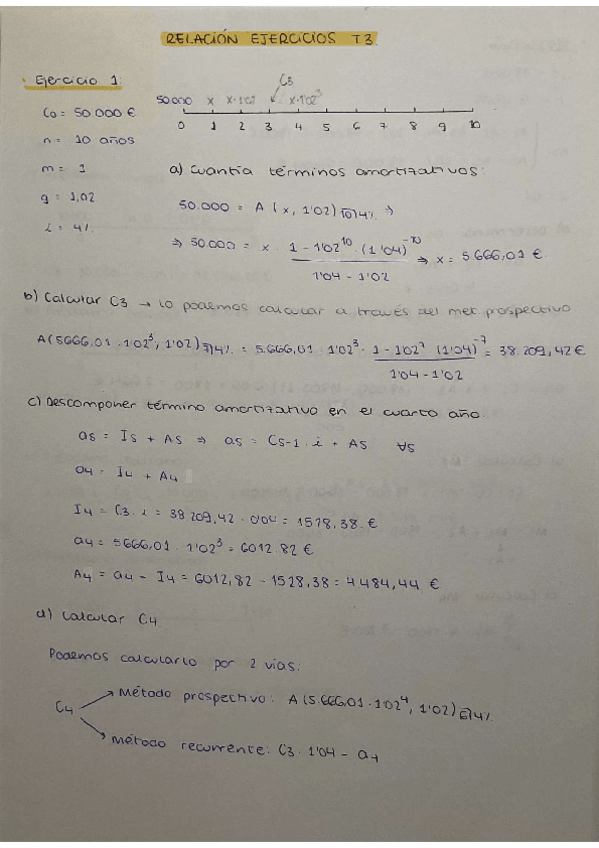 RELACIÓN EJERCICIOS T3
• Ejercicio 1:
C3
50.000 x x·1'02 x·1'02³
0 1 2 3 4 5 6 7 8 9 10
C0 = 50 000 €
n = 10 años
m = 1
q = 1,02
i = 4%
a) Cuantía términos amortizativos:
50.000 = A (x, 1'02) 10|4% ⇒
⇒ 50.000 = x · (1 - 1'02^10 · (1'04)^-10) / (1'04 - 1'02) ⇒ x = 5.666,01 €
b) Calcular C3 → Lo podemos calcular a través del met prospectivo
A(5666,01 · 1'02³, 1'02) 7|4% = 5.666,01 · 1'02³ · (1 - 1'02^7 (1'04)^-7) / (1'04 - 1'02) = 38.209,42 €
c) Descomponer término amortizativo en el cuarto año.
as = Is + As ⇒ as = Cs-1 · i + As ∀s
a4 = I4 + A4
I4 = C3 · i = 38 209,42 · 0'04 = 1528,38 €
a4 = 5666,01 · 1'02³ = 6012,82 €
A4 = a4 - I4 = 6012,82 - 1528,38 = 4484,44 €
d) Calcular C4
Podemos calcularlo por 2 vías:
C4
Método prospectivo: A(5.666,01 · 1'02⁴, 1'02) 6|4%
Método recurrente: C3 · 1'04 - a4